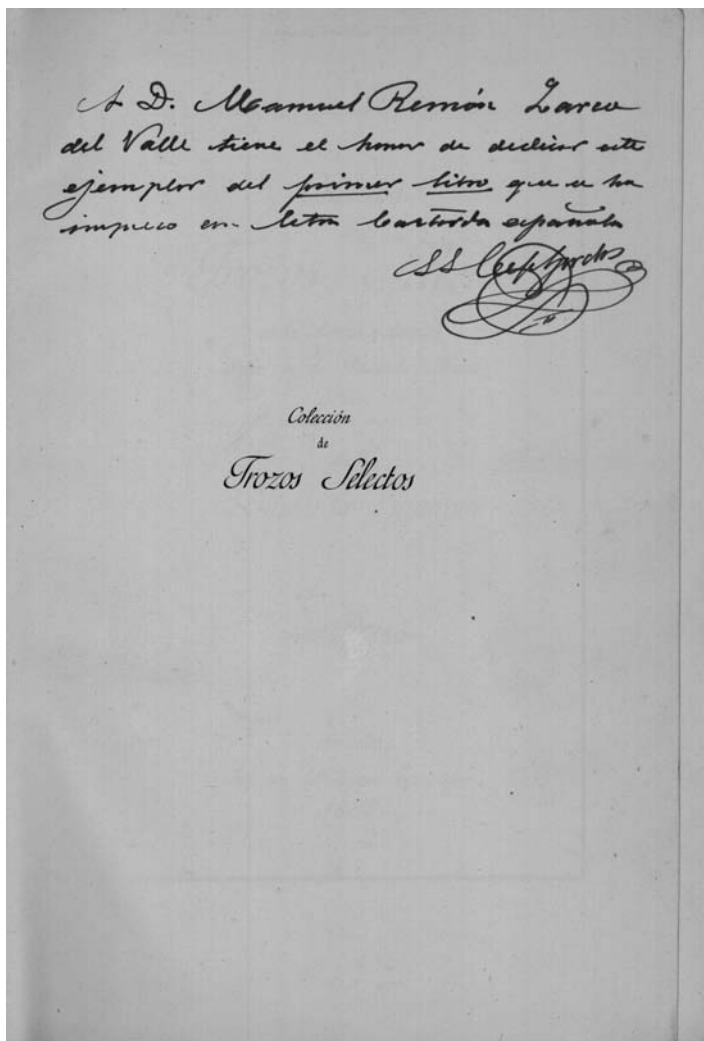 A D. Manuel Remón Zarco
del Valle tiene el honor de dedicar este
ejemplar del primer libro que se ha
impreso en letra bastarda española
SS
Colección
de
Trozos Selectos